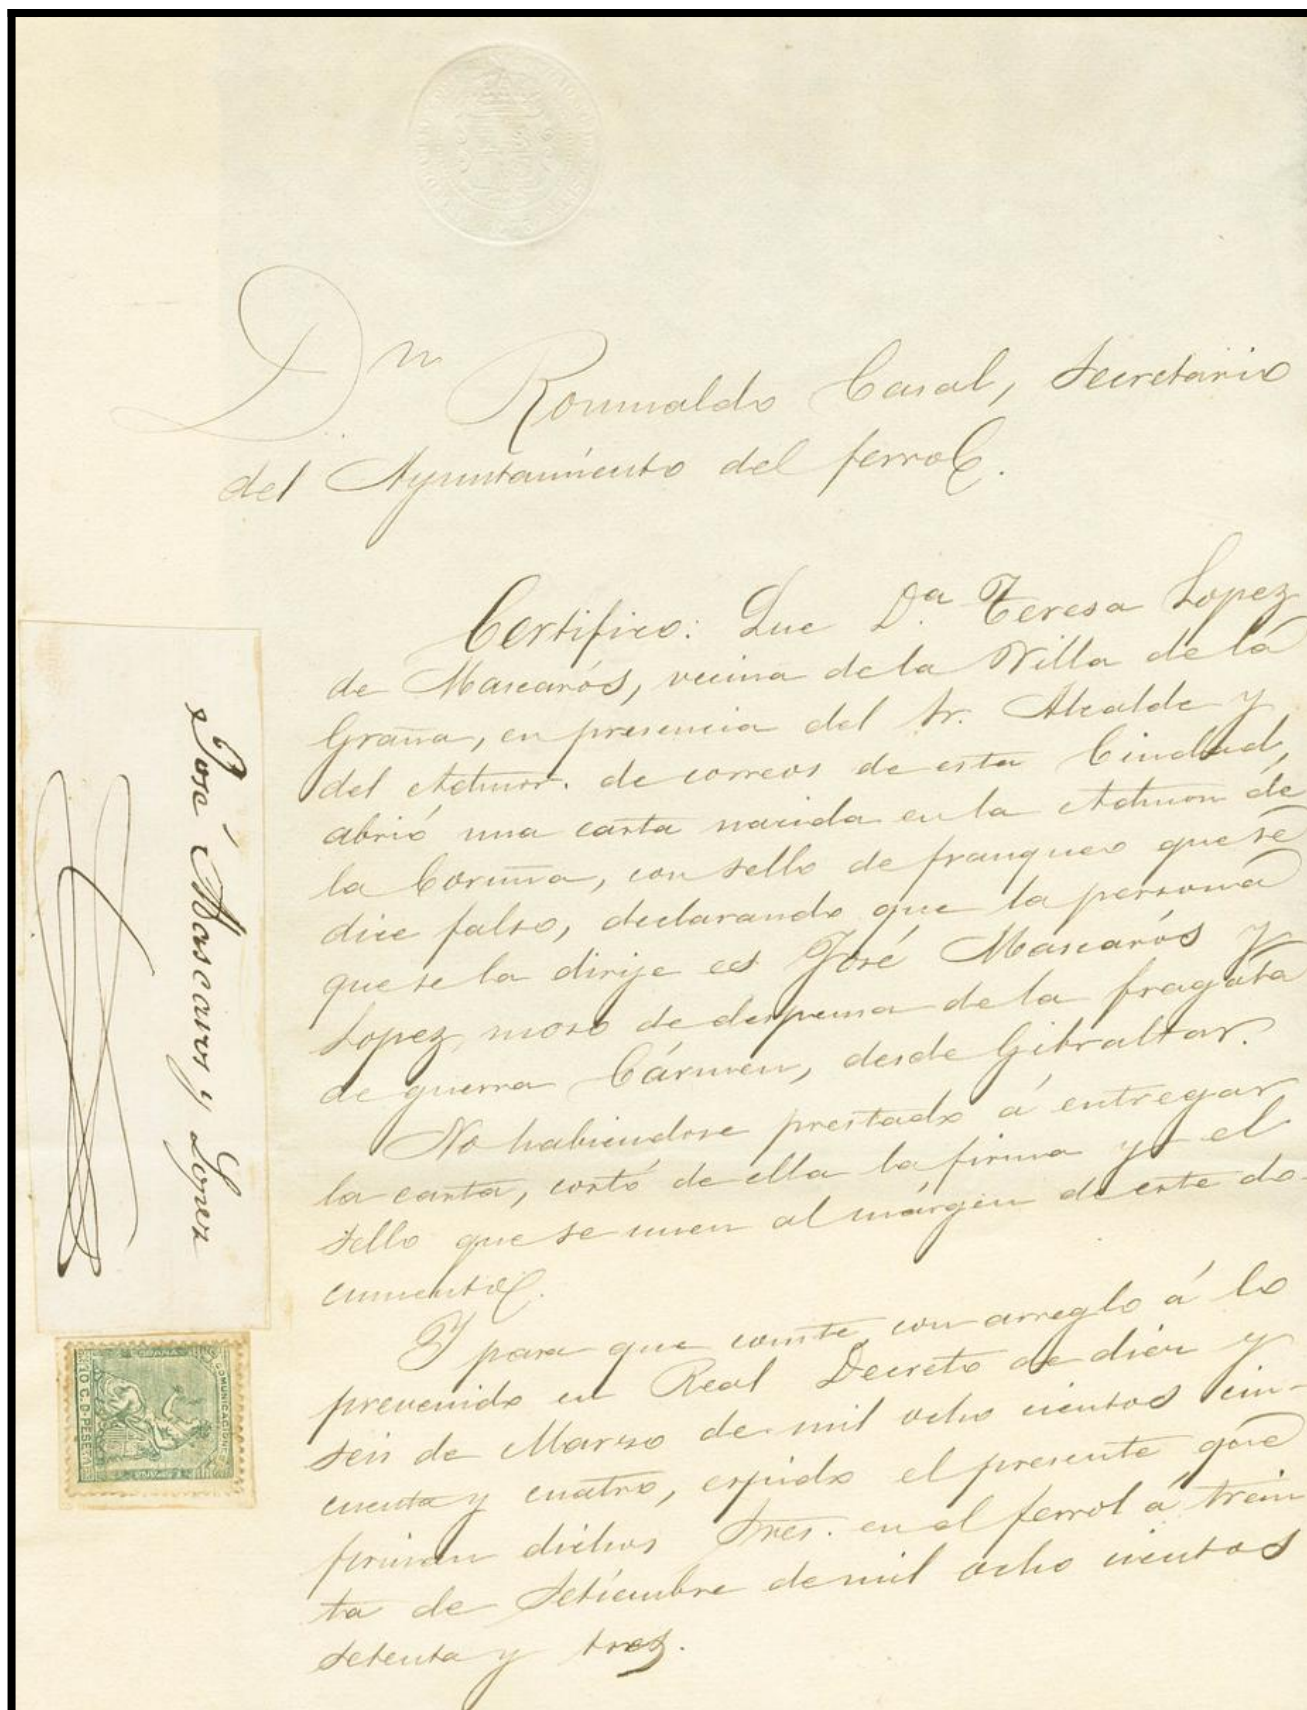 Dn. Romualdo Casal, Secretario
del Ayuntamiento del ferrol.
Certifico: Que D.a Teresa Lopez
de Mascarós, vecina de la Villa de la
Graña, en presencia del Sr. Alcalde y
del Admor. de correos de esta Ciudad,
abrió una carta nacida en la Admon de
la Coruña, con sello de franqueo que se
dice falso, declarando que la persona
que se la dirije es José Mascarós y
Lopez, mozo de despensa de la fragata
de guerra Cármen, desde Gibraltar.
No habiendose prestado á entregar
la carta, cortó de ella la firma y el
sello que se unen al márgen de este do-
cumento.
Y para que conste, con arreglo á lo
prevenido en Real Decreto de diez y
seis de Marzo de mil ocho cientos cin-
cuenta y cuatro, espido el presente que
firman dichos Sres. en el ferrol á trein
ta de Setiembre de mil ocho cientos
setenta y tres.
José Mascaros y Lopez
COMUNICACIONES
ESPAÑA
10 C. D. PESETA